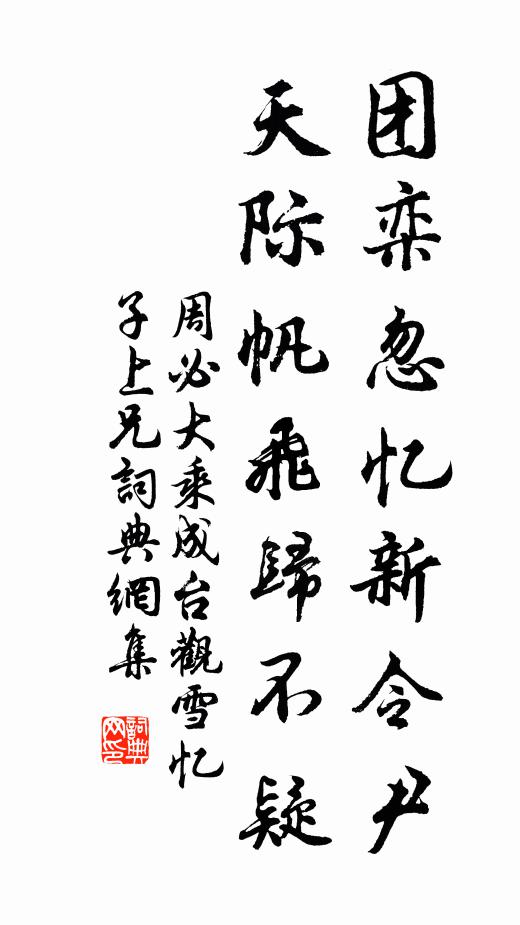 团栾忽忆新令尹
天际帆飞歸不疑
周必大乘成台觀雪忆
子上兄詞典網集
詞典
网印